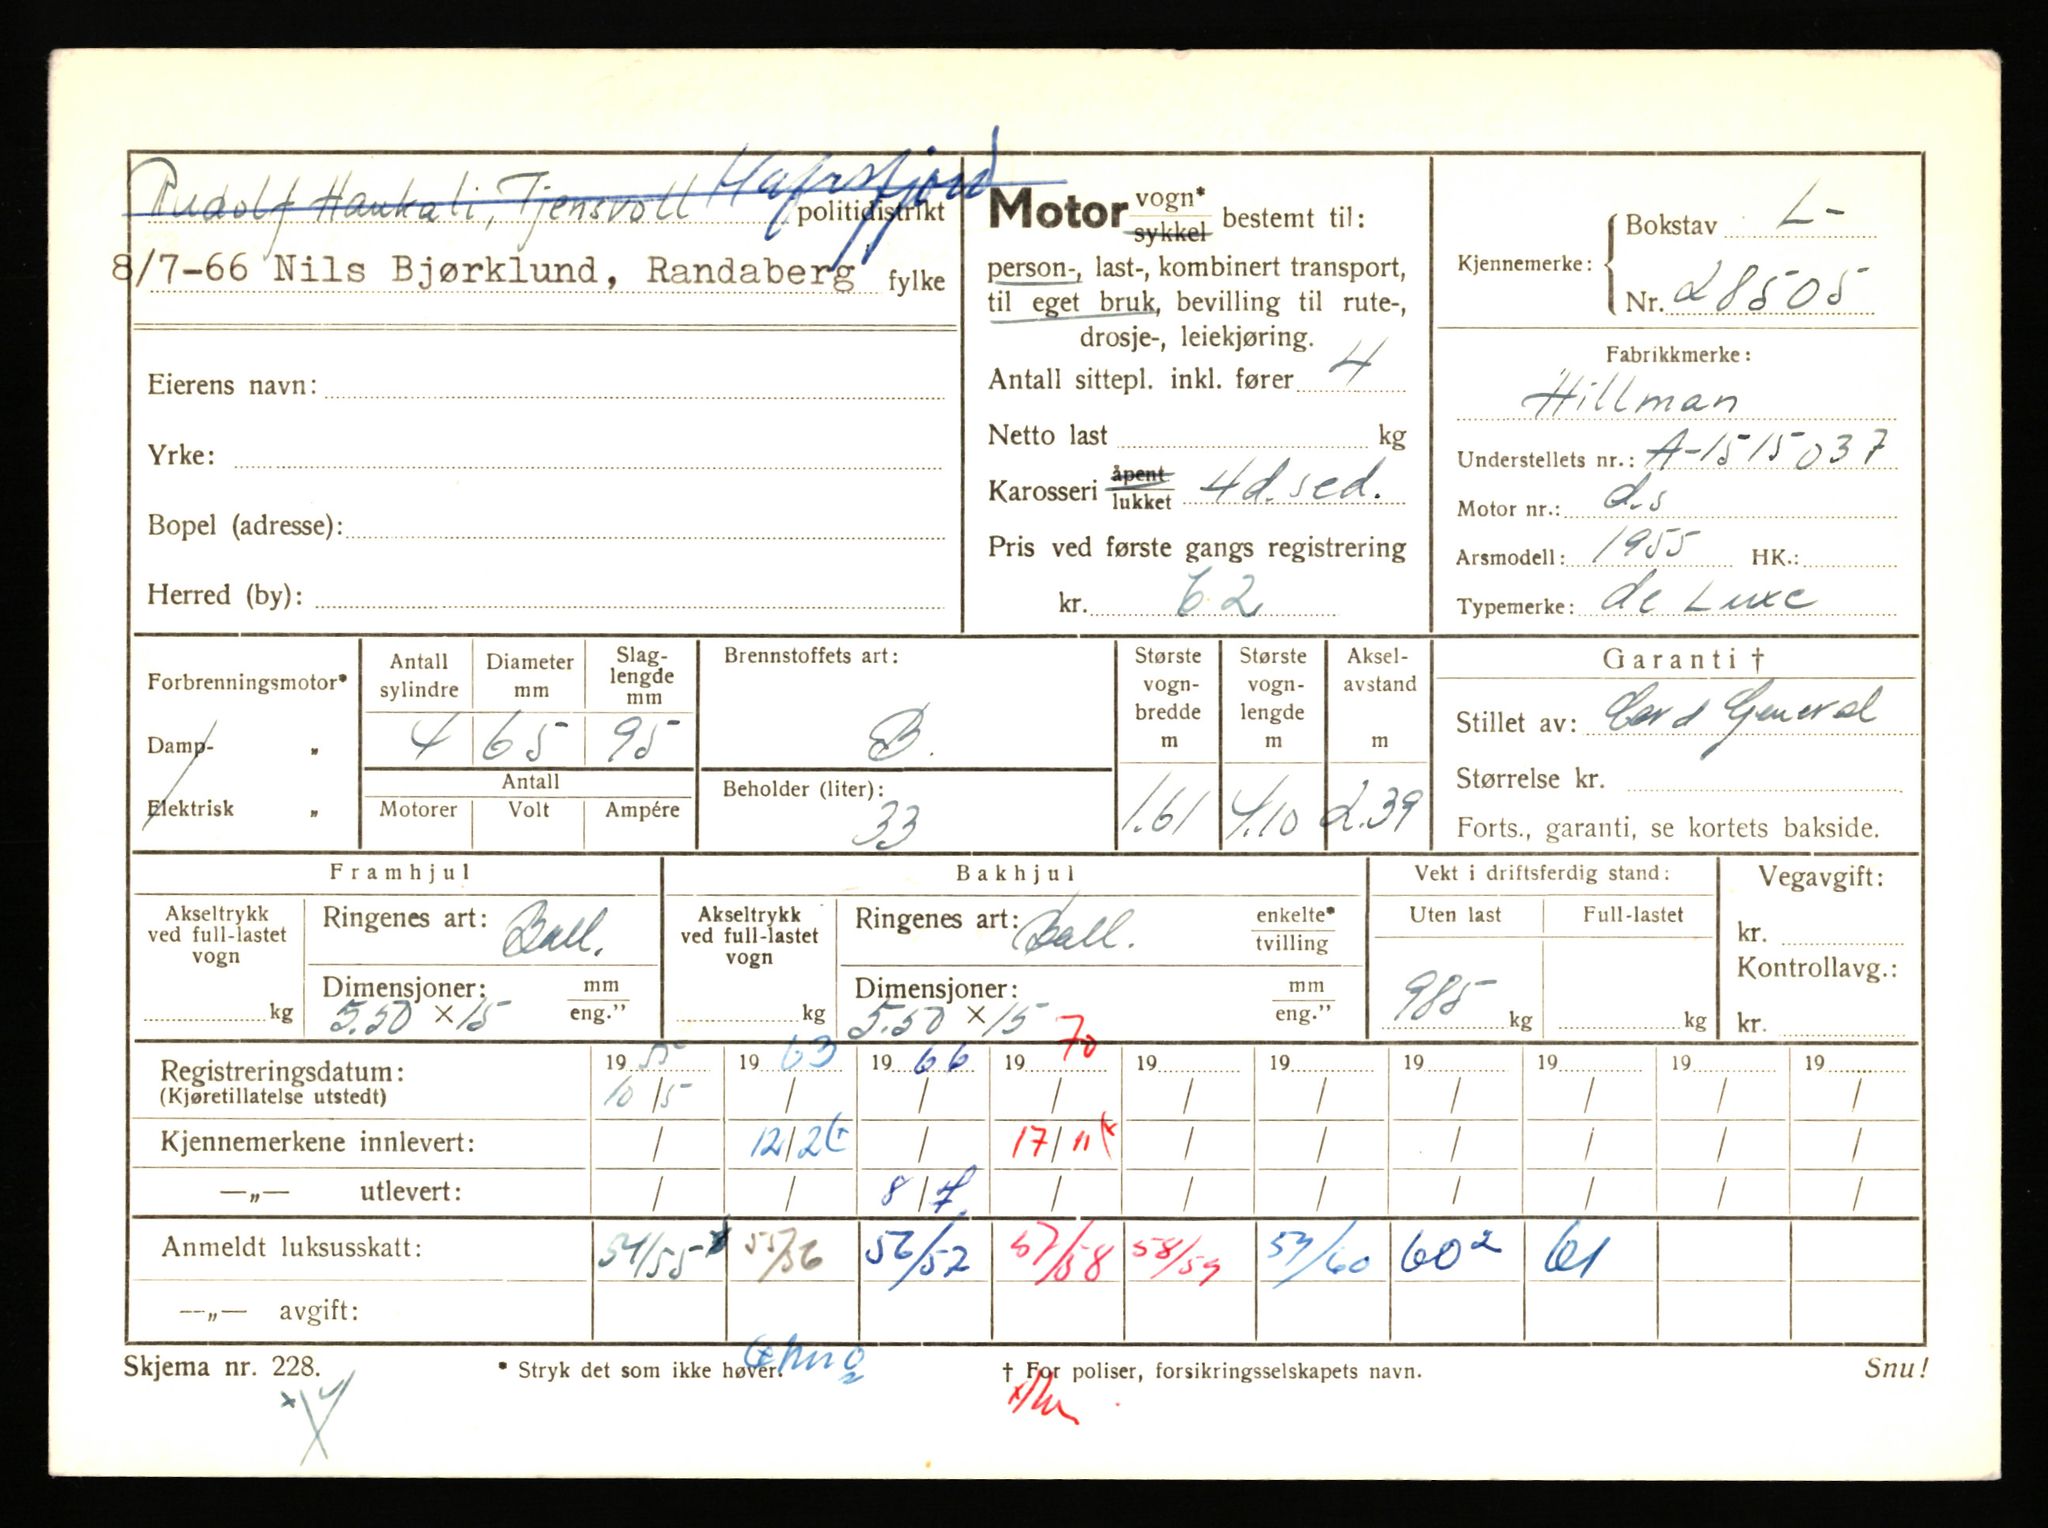 Rudolf Haukali, Tjensvoll Hafrsfjord politidistrikt
8/7-66 Nils Bjørklund, Randaberg fylke
Eierens navn:
Yrke:
Bopel (adresse):
Herred (by):
Motor vogn* sykkel bestemt til:
person-, last-, kombinert transport,
til eget bruk, bevilling til rute-,
drosje-, leiekjøring.
Antall sittepl. inkl. fører 4
Netto last kg
Karosseri åpent lukket 4 d. sed.
Pris ved første gangs registrering
kr. 62
Kjennemerke: Bokstav L-
Nr. 28505
Fabrikkmerke:
Hillman
Understellets nr.: A-1515037
Motor nr.: d.s
Arsmodell: 1955 HK.:
Typemerke: de Luxe
Forbrenningsmotor*
Damp- „
Elektrisk „
Antall sylindre 4
Diameter mm 65
Slag-lengde mm 95
Antall
Motorer Volt Ampére
Brennstoffets art:
B.
Beholder (liter):
33
Største vogn-bredde m 1.61
Største vogn-lengde m 4.10
Aksel-avstand m 2.39
Garanti †
Stillet av: General
Størrelse kr.
Forts., garanti, se kortets bakside.
Framhjul
Akseltrykk ved full-lastet vogn kg
Ringenes art: Ball.
Dimensjoner: mm eng.”
5.50 × 15
Bakhjul
Akseltrykk ved full-lastet vogn kg
Ringenes art: Ball. enkelte* tvilling
Dimensjoner: mm eng.”
5.50 × 15
Vekt i driftsferdig stand:
Uten last 985 kg
Full-lastet kg
Vegavgift:
kr.
Kontrollavg.:
kr.
Registreringsdatum: 19 55 19 63 19 66 19 70 19 19 19 19 19 19
(Kjøretillatelse utstedt) 10/5 / / / / / / / / /
Kjennemerkene innlevert: / 12/2 (x / 17/11 (x / / / / / /
—„— utlevert: / / 8/7 / / / / / / /
Anmeldt luksusskatt: 54/55 55/56 56/57 57/58 58/59 59/60 60² 61
—„— avgift:
Skjema nr. 228. * Stryk det som ikke høver. † For poliser, forsikringsselskapets navn. Snu!